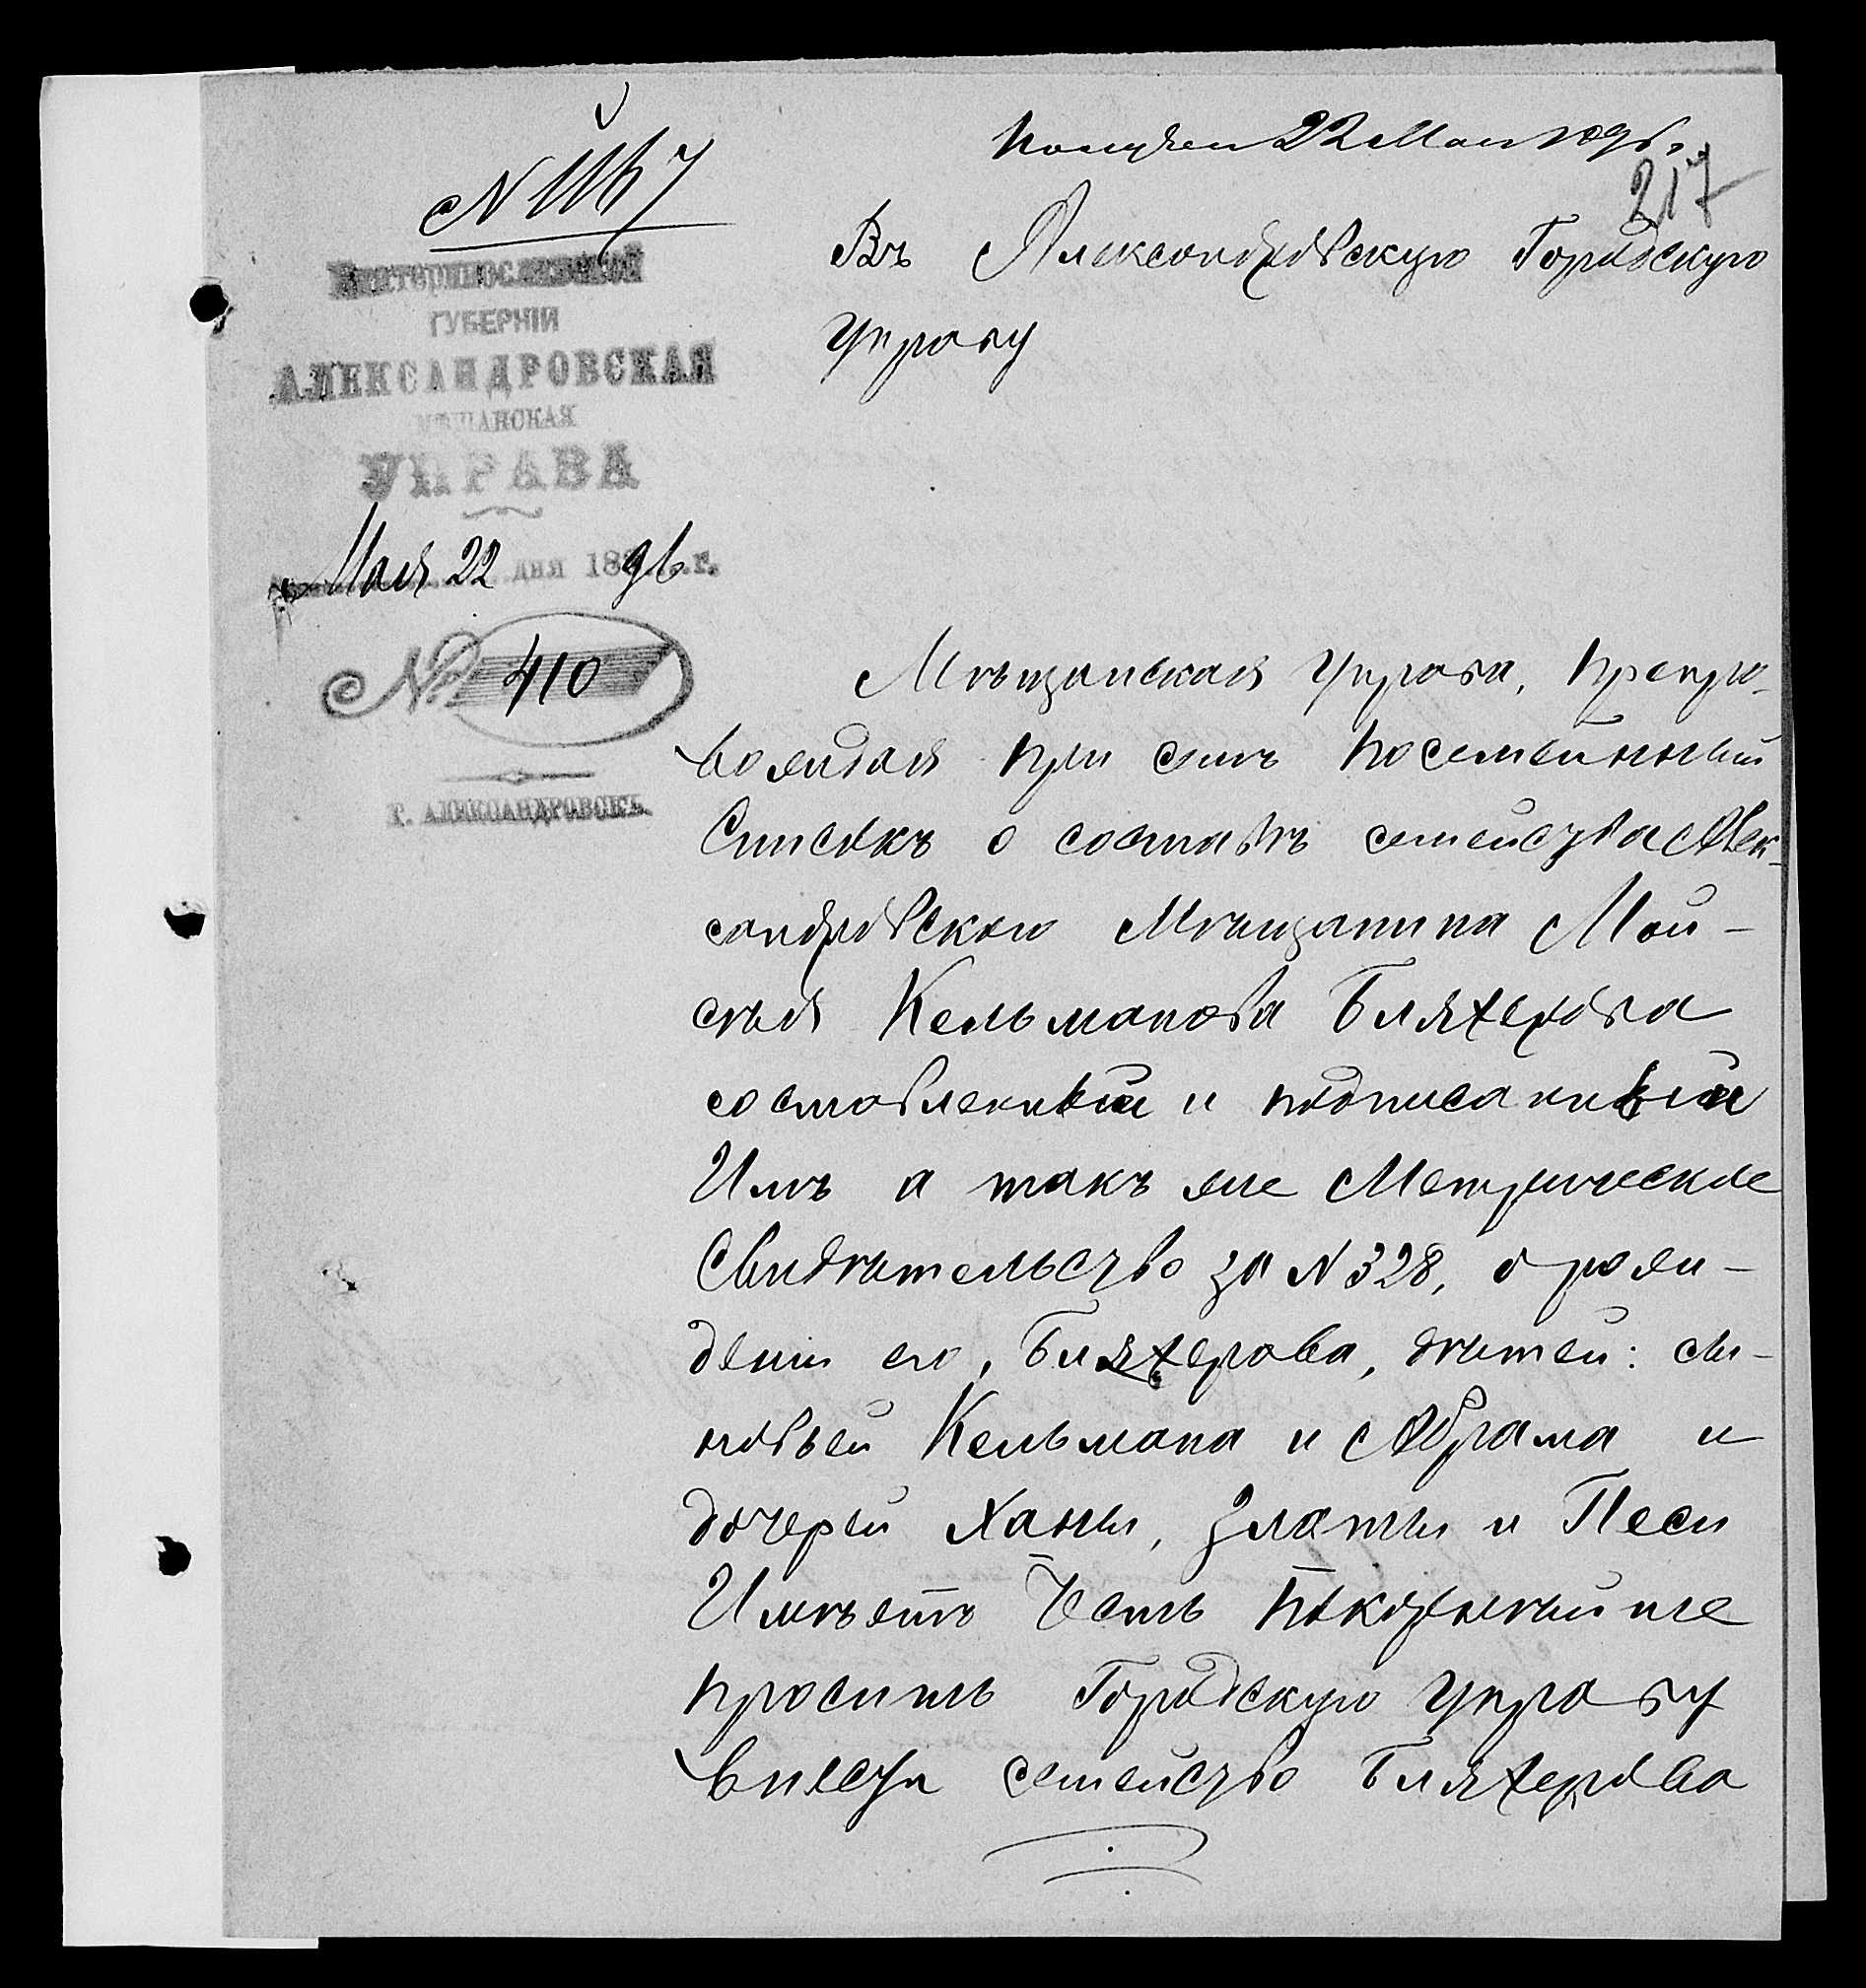 Получен 22 Мая 1896.
217
№
Въ Александровскую Городскую
Управу
Екатеринославской
ГУБЕРНІИ
АЛЕКСАНДРОВСКАЯ
МѢЩАНСКАЯ
УПРАВА
Мая 22 дня 1896 г.
№ 410
Г. АЛЕКСАНДРОВСКЪ.
Мѣщанская Управа, препро-
вождая при семъ посемейный
Списокъ о составѣ семейства Алек-
сандровскаго Мѣщанина Мой-
сея Кельманова Бляхерова
составленный и подписанный
Имъ а такъ же Метрическое
Свидѣтельство за N 328, о рож-
дении его, Бляхерова, дѣтей: сы-
новьей Кельмана и Абрама и
дочерей Ханы, Златы и Песи
Имѣетъ Честь покорнѣйше
просить Городскую Управу
внести семейство Бляхерова